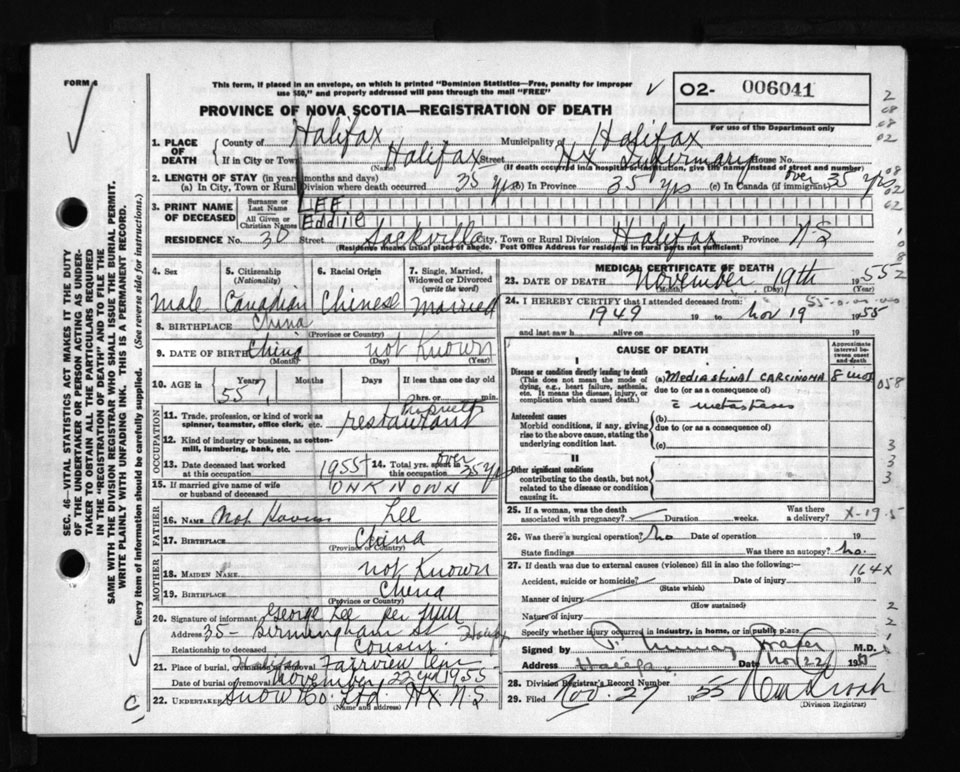 FORM 4
This form, if placed in an envelope, on which is printed "Dominion Statistics—Free, penalty for improper
use $50," and properly addressed will pass through the mail "FREE"
O2- 006041
For use of the Department only
PROVINCE OF NOVA SCOTIA—REGISTRATION OF DEATH
1. PLACE OF DEATH County of Halifax Municipality of Halifax
If in City or Town Halifax Street Hx Infirmary House No.
(Name) (If death occurred in a hospital or institution, give the name instead of street and number)
2. LENGTH OF STAY (in years, months and days)
(a) In City, Town or Rural Division where death occurred 35 yrs (b) In Province 35 yrs (c) In Canada (if immigrant) over 35 yrs
3. PRINT NAME OF DECEASED Surname or Last Name LEE
All Given or Christian Names Eddie
RESIDENCE No. 30 Street Sackville City, Town or Rural Division Halifax Province N.S
(Residence means usual place of abode. Post Office Address for residents in rural parts not sufficient)
4. Sex male
5. Citizenship (Nationality) Canadian
6. Racial Origin Chinese
7. Single, Married, Widowed or Divorced (write the word) Married
8. BIRTHPLACE China
(Province or Country)
9. DATE OF BIRTH China not Known
(Month) (Day) (Year)
10. AGE in 55 Years Months Days If less than one day old
hrs. or min.
OCCUPATION
11. Trade, profession, or kind of work as
spinner, teamster, office clerk, etc. restaurant
12. Kind of industry or business, as cotton-
mill, lumbering, bank, etc.
13. Date deceased last worked at this occupation 1955 14. Total yrs. spent in this occupation over 35 yrs
15. If married give name of wife
or husband of deceased UNKNOWN
FATHER
16. NAME Lee
17. BIRTHPLACE China
(Province or Country)
MOTHER
18. MAIDEN NAME not Known
19. BIRTHPLACE China
(Province or Country)
20. Signature of informant George Lee per
Address 35- Birmingham St Halifax
Relationship to deceased Cousin
21. Place of burial, cremation or removal Halifax Fairview Cem
Date of burial or removal November 22nd 1955
22. UNDERTAKER Snow Co Ltd. HX N S
(Name and address)
MEDICAL CERTIFICATE OF DEATH
23. DATE OF DEATH November 19th 1955
(Month) (Day)
24. I HEREBY CERTIFY that I attended deceased from:
1949 19 to Nov 19 1955
and last saw h alive on 19
CAUSE OF DEATH
Approximate interval between onset and death
I
Disease or condition directly leading to death
(This does not mean the mode of
dying, e.g., heart failure, asthenia,
etc. It means the disease, injury, or
complication which caused death.)
(a) Mediastinal Carcinoma 8 mos
due to (or as a consequence of)
c metastases
Antecedent causes
Morbid conditions, if any, giving
rise to the above cause, stating the
underlying condition last.
(b)
due to (or as a consequence of)
(c)
II
Other significant conditions
contributing to the death, but not
related to the disease or condition
causing it.
25. If a woman, was the death
associated with pregnancy? Duration weeks. Was there a delivery?
X-19.5
26. Was there a surgical operation? No Date of operation 19
State findings Was there an autopsy? No.
27. If death was due to external causes (violence) fill in also the following:—
164X
Accident, suicide or homicide? Date of injury 19
(State which)
Manner of injury
(How sustained)
Nature of injury
Specify whether injury occurred in industry, in home, or in public place.
Signed by Murray Fraser M.D.
Address Halifax Date Nov 22 19
28. Division Registrar's Record Number
29. Filed Nov. 27 1955
(Division Registrar)
058
SEC. 46—VITAL STATISTICS ACT MAKES IT THE DUTY
OF THE UNDERTAKER OR PERSON ACTING AS UNDER-
TAKER TO OBTAIN ALL THE PARTICULARS REQUIRED
IN THE "REGISTRATION OF DEATH" AND TO FILE THE
SAME WITH THE DIVISION REGISTRAR WHO SHALL ISSUE THE BURIAL PERMIT.
WRITE PLAINLY WITH UNFADING INK. THIS IS A PERMANENT RECORD.
Every item of information should be carefully supplied. (See reverse side for instructions.)